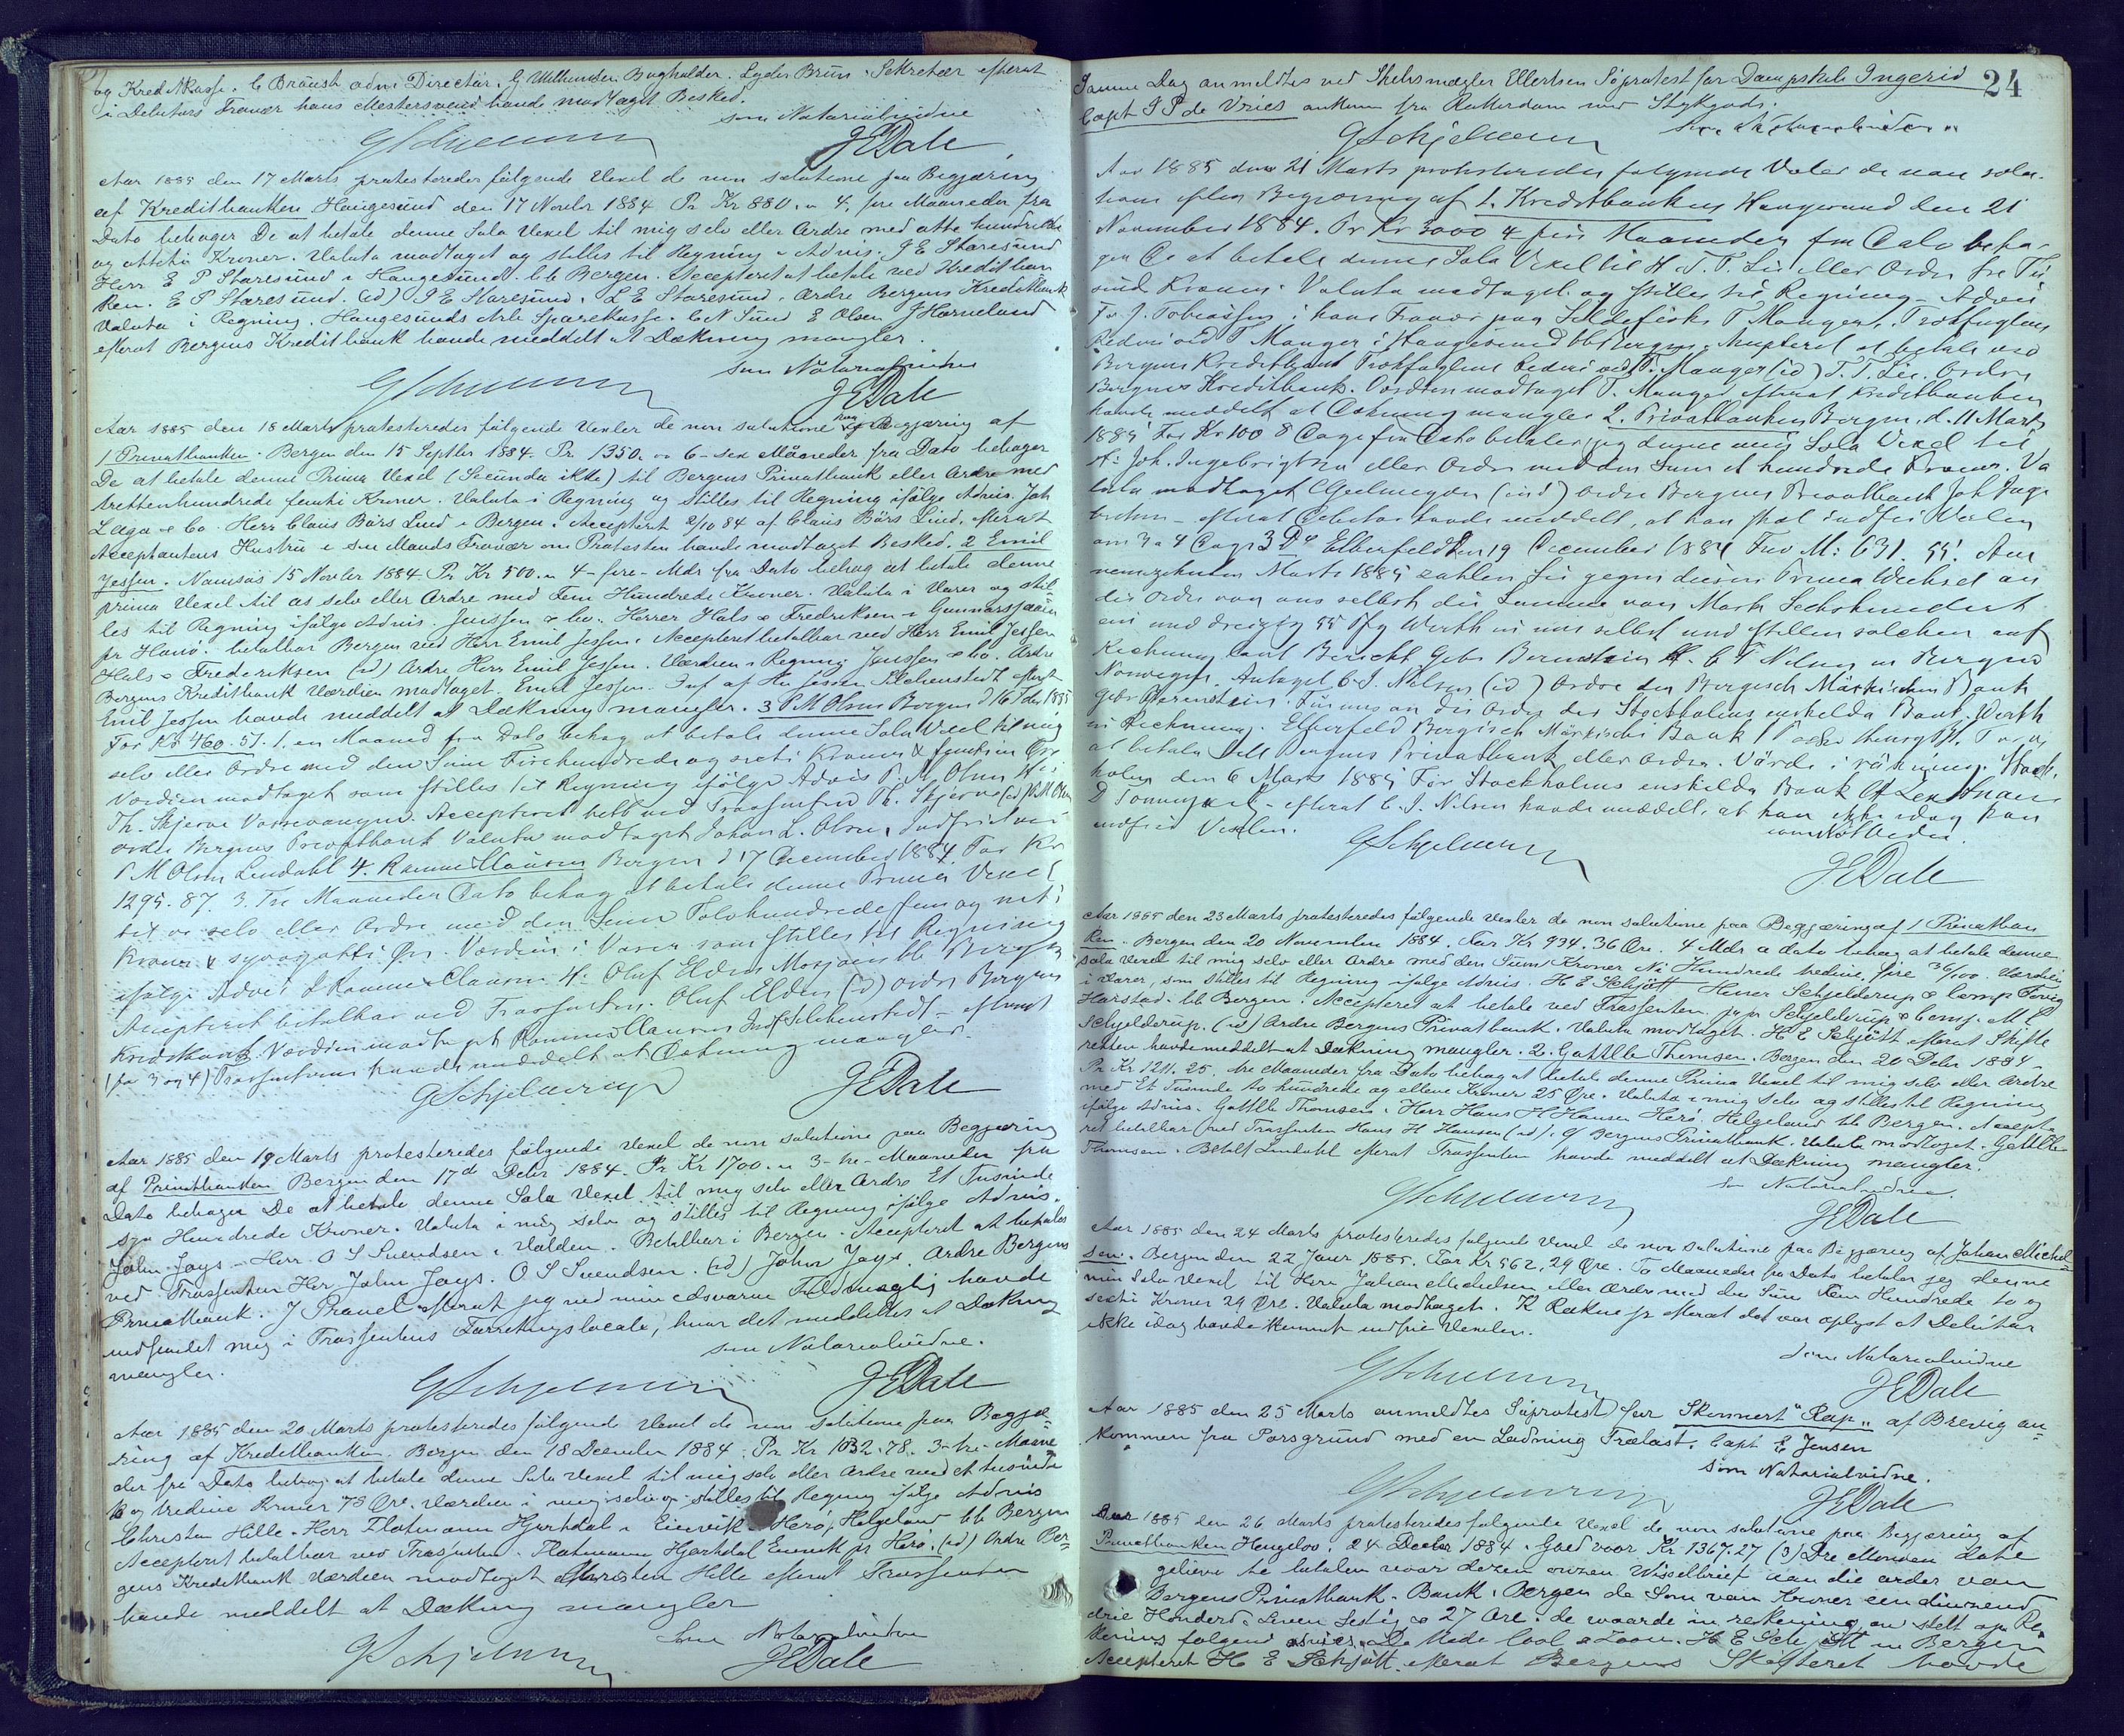 og Kreditkasse. C Brånsh adm: Directör. G. Wilhemsen Bogholder. Lyder Brun. Sekretær efterat
i Debitors Fravær hans Mestersvend havde modtaget Besked.
som Notarialvidne
GSchjelderup JEDale
Aar 1885 den 17 Marts protesteredes følgende Vexel de non solutione paa Begjæring
af Kreditbanken Haugesund den 17 Novebr 1884 Pr Kr 880. " 4. fire Maaneder fra
Dato behager De at betale denne Sola Vexel til mig selv eller Ordre med otte hundrede
og otteti Kroner. Valuta modtaget og stilles til Regning u Advis. J E Staresund
Herr E P Staresund i Haugesund. btb Bergen. Accepteret at betale ved Kreditban
ken. E P Staresund. (ed) J E Staresund. L E Staresund. Ordre Bergens Kreditbank
Valuta i Regning. Haugesunds Arb Sparekasse. C N Sund E Olsen J Korneland
efterat Bergens Kreditbank havde meddelt at Dækning mangler.
som Notarialvidne
GSchjelderup JEDale
Aar 1885 den 18 Marts protesteredes følgende Vexler de non solutione paa Begjæring af
1 Privatbanken. Bergen den 15 Septbr 1884. Pr 1350. " 6 - sex Maaneder fra Dato behager
De at betale denne Prima Vexel (Secunda ikke) til Bergens Privatbank eller Ordre med
trettenhundrede femti Kroner. Valuta i Regning og stilles til Regning ifølge Advis. Joh
Laga & Co. Herr Claus Börs Lind i Bergen. Accepteret 2/10 84 af Claus Börs Lind. efterat
Acceptantens Hustru i sin Mands Fravær om Protesten havde modtaget Besked. 2 Emil
Jessen. Namsos 15 Novbr 1884 Pr Kr 500. " 4 - fire - Mdr fra Dato behag at betale denne
prima Vexel til os selv eller Ordre med Fem Hundrede Kroner. Valuta i Varer og stil-
les til Regning ifølge Advis. Jenssen & Co. Herrer Hals & Fredriksen i Gunnarsjaaen
pr Hanø. betalbar Bergen ved Herr Emil Jessen. Accepteret betalbar ved Herr Emil Jessen
Hals & Frederiksen (ed) Ordre Herr Emil Jessen. Værdien i Regning Jenssen & Co. Ordre
Bergens Kreditbank Værdien modtaget. Emil Jessen. Inf af Hagbart Lichenstedt efterat
Emil Jessen havde meddelt at Dækning mangler. 3 P M Olsen Bergen d 16 Febr 1885
For Kr 460.51. 1. en Maaned fra Dato behag at betale denne Sola Vexel til mig
selv eller Ordre med den Sum Firehundrede og sexti Kroner & femtien Øre
Værdien modtaget som stilles til Regning ifølge Advis P. M Olsen Hr
Th. Skjerve Vossevangen. Accepteret betb ved Trassenten Th. Skjerve (ed) P M Olsen
ordre Bergens Privatbank Valuta modtaget Johan L. Olsen, Indfriet ved
P M Olsen Lindahl 4. Ramm & Clausen Bergen d 17 December 1884 For Kr
1295.87. 3. Tre Maaneder Dato behag at betale denne Prima Vexel
til os selv eller Ordre med den Sum Tolvhundrede fem og neti
Kroner & syvogotti Øre. Værdien i Varer som stilles til Regning
ifølge Advis L Ramm & Clausen Hr. Oluf Elden Mosjøen btb Bergen
Accepteret betalbar ved Trassenten. Oluf Elden (ed) ordre Bergens
Kreditbank Værdien modtaget Ramm & Clausen Indf Lichenstedt - efterat
(for 3 og 4) Trassenterne havde meddelt at Dækning mangler.
GSchjelderup JEDale
Aar 1885 den 19 Marts protesteredes følgende Vexel de non solutione paa Begjæring
af Privatbanken Bergen den 17d Debr 1884. Pr Kr 1700. " 3 - tre - Maaneder fra
Dato behager De at betale denne Sola Vexel til mig selv eller Ordre Et Tusinde
syv Hundrede Kroner. Valuta i mig selv og stilles til Regning ifølge Advis.
John Joys - Herr O S Svendsen i Valden. Betalbar i Bergen. Accepteret at betales
ved Trassenten Her John Joys. O S Svendsen. (ed) John Joys. Ordre Bergens
Privatbank. J Pravel efterat jeg ved min edsvorne Fuldmægtig havde
indfundet mig i Trassentens Forretningslocale, hvor det meddeltes at Dækning
mangler.
som Notarialvidne.
GSchjelderup JEDale
Aar 1885 den 20 Marts protesteredes følgende Vexel de non solutione paa Begjæ-
ring af Kreditbanken Bergen den 18 December 1884. Pr Kr 1032.78. 3 - tre - Maane
der fra Dato behag at betale denne Sola Vexel til mig selv eller Ordre med et tusinde
to og tredive Kroner 78 Øre. Værdien i mig selv og stilles til Regning ifølge Advis
Christen Hille. Herr Flotmann Hjertdal i Einvik Herø, Helgeland btb Bergen
Accepteret betalbar ved Trassenten. Flotmann Hjertdal Einvik pr Herø. (ed) Ordre Ber-
gens Kreditbank Værdien modtaget Christen Hille efterat Trassenten
havde meddelt at Dækning mangler
som Notarialvidne
GSchjelderup JEDale
24
Samme Dag anmeldtes ved Skibsmægler Ellertsen Søprotest for Dampskib Ingerid
Capt I P de Vries ankom fra Rotterdam med Stykgods.
som Notarialvidne
GSchjelderup
Aar 1885 den 21 Marts protesteredes følgende Vexler de non solu-
tione efter Begjæring af 1. Kreditbanken Haugesund den 21
November 1884. Pr Kr 3000 4 fire Maaneder fra Dato beha-
ger De at betale denne Sola Vexel til H. T. T. Lie eller Ordre tre Tu
sind Kroner. Valuta modtaget og stilles til Regning - Advis
Fr. J. Tobiassen i hans Fravær paa Sildefiske T Manger. Trotfuglens
Rederi ved T Manger i Haugesund btb Bergen. Accepteret at betale ved
Bergens Kreditbank Trotfuglens Rederi ved T. Manger (ed) T. T. Lie. Ordre
Bergens Kreditbank. Værdien modtaget T. Manger efterat Kreditbanken
havde meddelt at Dækning mangler 2. Privatbanken Bergen d. 11 Marts
1885 For Kr 100 8 Dage fra Dato betaler jeg denne min Sola Vexel til
Hr. Joh. Ingebrigtsen eller Ordre med den Sum et hundrede Kroner. Va
luta modtaget (ed) ordre Bergens Privatbank Joh Inge
brigtsen - efterat Debitor havde meddelt, at han skal indfri Vexlen
om 3 a 4 Dage 3 Do Elberfeld den 19 December 1884 For M: 631. 55. Am
neunzehnten Marts 1885 zahlen Sie gegen diesen Prima Wechsel an
die Ordre von uns selbst die Summe von Mark Sechshundert
ein und dreizig 55 Pfg Werth in uns selbst und stellen solchen auf
Rechnung laut Bericht Gebr Bernstein H. C J Nilsen in Bergen
Norwegen. Antaget C. J. Nilsen (ed) Ordre der Bergisch Märkischen Bank
Gebr Bernstein. Für uns an die Ordre der Stockholms enskilda Bank. Werth
in Rechnung. Elberfeld Bergisch Märkische Bank
at betala till Bergens Privatbank eller ordre. Värde i räkning. Stock.
holm den 6 Mars 1885 För Stockholms enskilda Bank
- efterat C. J. Nilsen havde meddelt, at han ikke idag kan
indfri Vexlen.
som Not Vidne
GSchjelderup JEDale
Aar 1885 den 23 Marts protesteredes følgende Vexler de non solutione paa Begjæring af 1 Privatban
ken. Bergen den 20 November 1884. For Kr 934.36 Øre. 4 Mdr a dato behag at betale denne
sola Vexel til mig selv eller Ordre med den Sum Kroner Ni Hundrede tredive fire 36/100. Værdien
i Varer, som stilles til Regning ifølge Advis. H E Schjött Herrer Schjelderup & Comp Foring
Harstad. btb Bergen. Accepteret at betale ved Trassenten. pr pr Schjelderup & Comp. M. C
Schjelderup. (ed) Ordre Bergens Privatbank. Valuta modtaget. H E Schjött efterat Skifte
retten havde meddelt at Dækning mangler. 2. Gottlb Thomsen. Bergen den 20 Debr 1884.
Pr Kr 1211.25. tre Maaneder fra Dato behag at betale denne Prima Vexel til mig selv eller Ordre
med Et Tusinde to hundrede og elleve Kroner 25 Øre. Valuta i mig selv og stilles til Regning
ifølge Advis. Gottlb Thomsen. Herr Hans H Hansen Herø. Helgeland btb Bergen. Accept-
ret betalbar ved Trassenten Hans H Hansen (ed). O/ Bergens Privatbank. Valuta modtaget. Gottlb
Thomsen. Betalt Lindahl efterat Trassenten havde meddelt at Dækning mangler.
som Notarialvidne.
GSchjelderup JEDale
Aar 1885 den 24 Marts protesteredes følgende Vexel de non solutione paa Begjæring af Johan Michel-
sen. Bergen den 22 Janur 1885. For Kr 562.29 Øre. To Maaneder fra Dato betaler jeg denne
min Sola Vexel til Herr Johan Michelsen eller Ordre med den Sum Fem Hundrede to og
sexti Kroner 29 Øre. Valuta modtaget. K Rækne jr efterat det var oplyst at Debitor
ikke idag havde kunnet indfrie Vexelen.
som Notarialvidne
GSchjelderup JEDale
Aar 1885 den 25 Marts anmeldtes Søprotest for Skonnert "Rap" af Brevig an-
kommen fra Porsgrund med en Ladning Trælast. Capt E Jensen
som Notarialvidne.
GSchjelderup JEDale
Aar 1885 den 26 Marts protesteredes følgende Vexel de non solutione paa Begjæring af
Privatbanken Hengeloo. 24 Decbr 1884. Goed voor Kr 1367.27 (3) Dre Monden dato
gelieve te betalen voor dezen onzen Wisselbrief aan die order van
Bergens Privatbank. Bank. Bergen de Som van Kroner een duizend
drie Honderd Zeven Sestig & 27 Øre. de waarde in rekening en stelt op Re
kening volgend advies. De Vade Cool & Zoon. H E Schjött in Bergen
Accepteret H E Schjött. efterat Bergens Skifteret havde